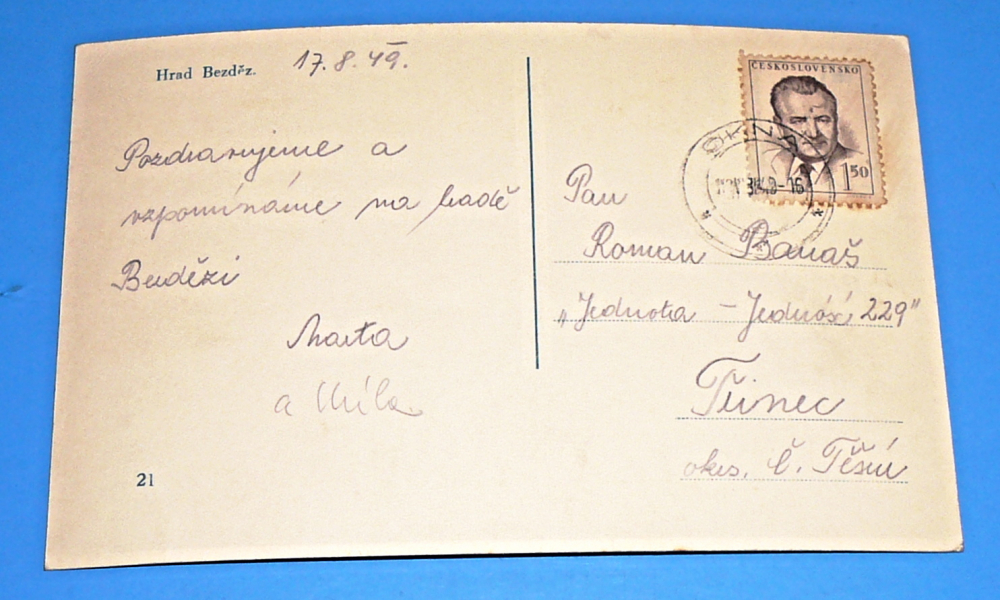 Hrad Bezděz.
17. 8. 49.
Pozdravujeme a
vzpomínáme na hradě
Bezdězi
Marta
a Míla
21
ČESKOSLOVENSKO
1 50
Pan
Roman Banaš
"Jednota - Jedność 229"
Třinec
okres. Č. Těšín